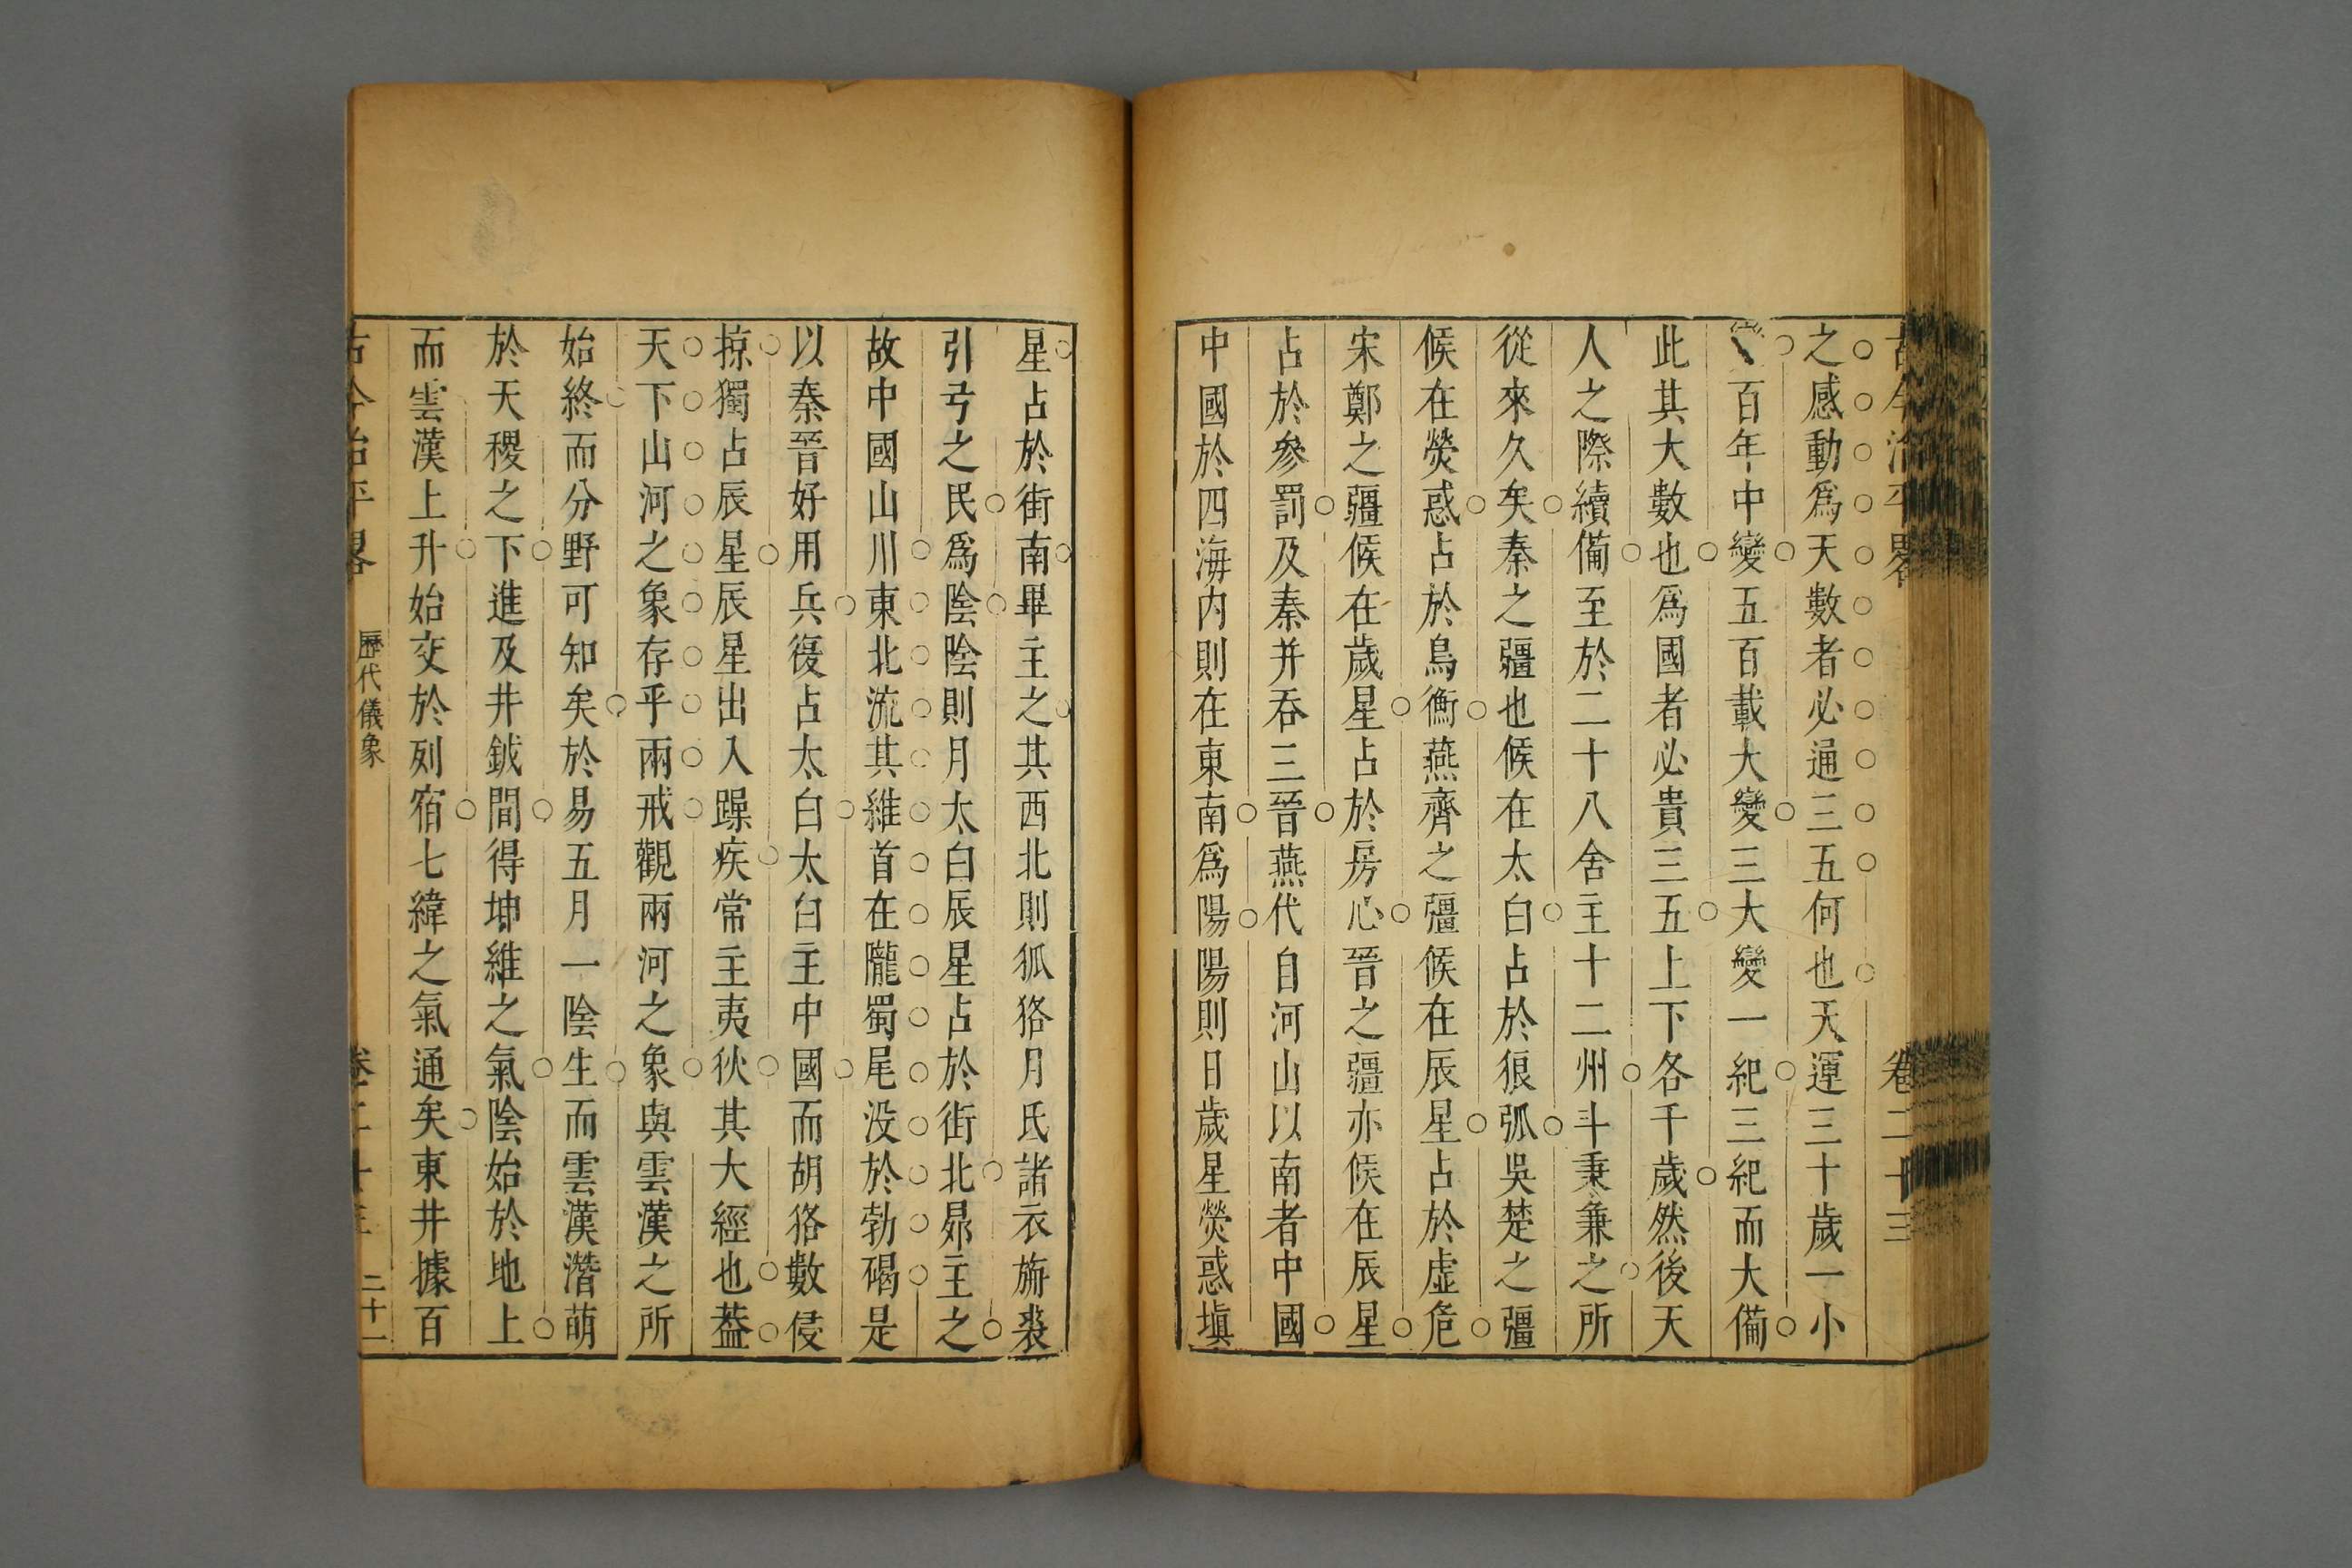 古今治平畧 卷二十三
之感動爲天數者必通三五何也天運三十歲一小
變百年中變五百載大變三大變一紀三紀而大備
此其大數也爲國者必貴三五上下各千歲然後天
人之際續備至於二十八舍主十二州斗秉兼之所
從來久矣秦之疆也候在太白占於狼弧吳楚之疆
候在熒惑占於鳥衡燕齊之疆候在辰星占於虛危
宋鄭之疆候在歲星占於房心晉之疆亦候在辰星
占於參罰及秦并吞三晉燕代自河山以南者中國
中國於四海內則在東南爲陽陽則日歲星熒惑塡
星占於街南畢主之其西北則狐狢月氏諸衣旃裘
引弓之民爲陰陰則月太白辰星占於街北昴主之
故中國山川東北流其維首在隴蜀尾没於勃碣是
以秦晉好用兵復占太白太白主中國而胡狢數侵
掠獨占辰星辰星出入躁疾常主夷狄其大經也葢
天下山河之象存乎兩戒觀兩河之象與雲漢之所
始終而分野可知矣於易五月一陰生而雲漢潛萌
於天稷之下進及井鉞間得坤維之氣陰始於地上
而雲漢上升始交於列宿七緯之氣通矣東井據百
古今治平畧 歷代儀象 卷二十三 二十一